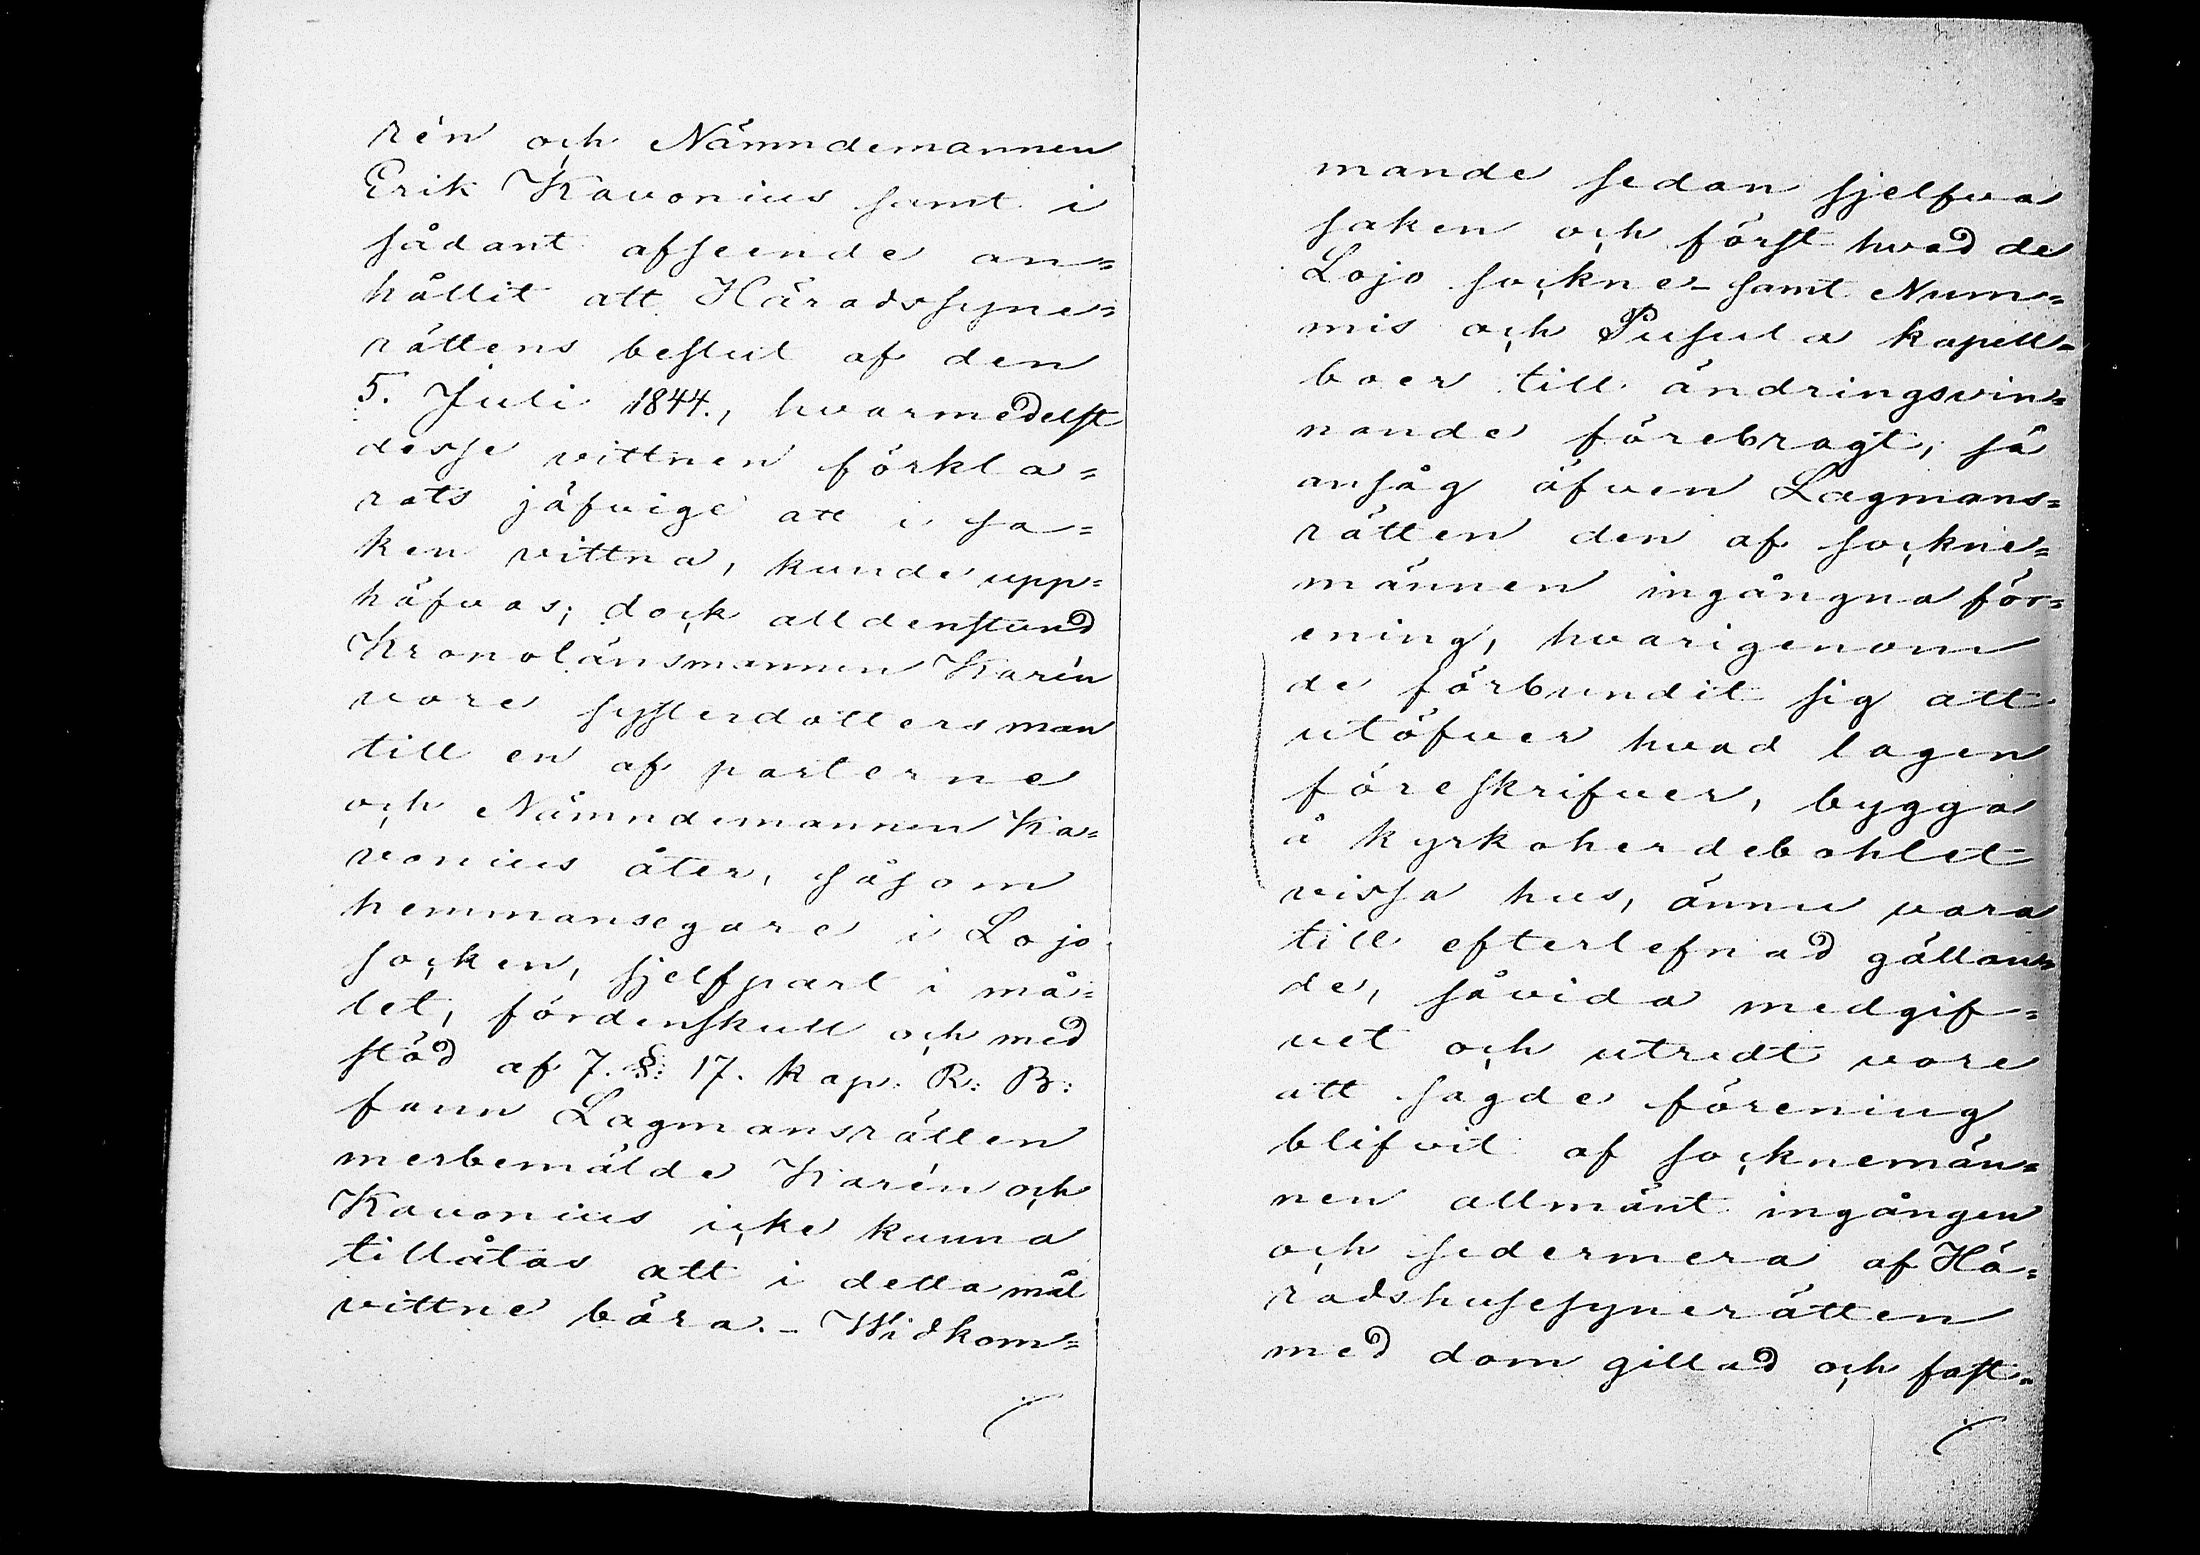 rén och Nämndemannen
Erik Kavonius samt i
sådant afseende an=
hållit att Häradssyne=
rättens beslut af den
5. Juli 1844., hvarmedelst
desse vittnen förkla=
rats jäfvige att i sa=
ken vittna, kunde upp=
häfvas; dock alldenstund
Kronolänsmannen Karén
vore systerdotters man
till en af parterne
och Nämndemannen Ka=
vonius åter, såsom
hemmansegare i Lojo
socken, sjelfpart i må=
let, fördenskull och med
stöd af 7. §: 17. kap: R: B:
fann Lagmansrätten
merbemälde Karén och
Kavonius icke kunna
tillåtas att i detta mål
vittne bära. – Widkom=
mande sedan sjelfva
saken och först hvad de
Lojo sockne- samt Num=
mis och Pusula kapell=
boer till ändringsvin=
nande förebragt, så
ansåg äfven Lagmans=
rätten den af sockne=
männen ingångna för=
ening, hvarigenom
de förbundit sig att
utöfver hvad lagen
föreskrifver, bygga
å kyrkoherdebohlet
vissa hus, ännu vara
till efterlefnad gällan=
de, såvida medgif=
vet och utredt vore
att sagde förening
blifvit af socknemän=
nen allmänt ingången
och sedermera af Hä=
radshusesynerätten
med dom gillad och fast=